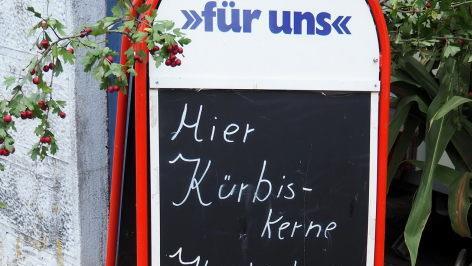 »für uns«
Hier
Kürbis-
kerne